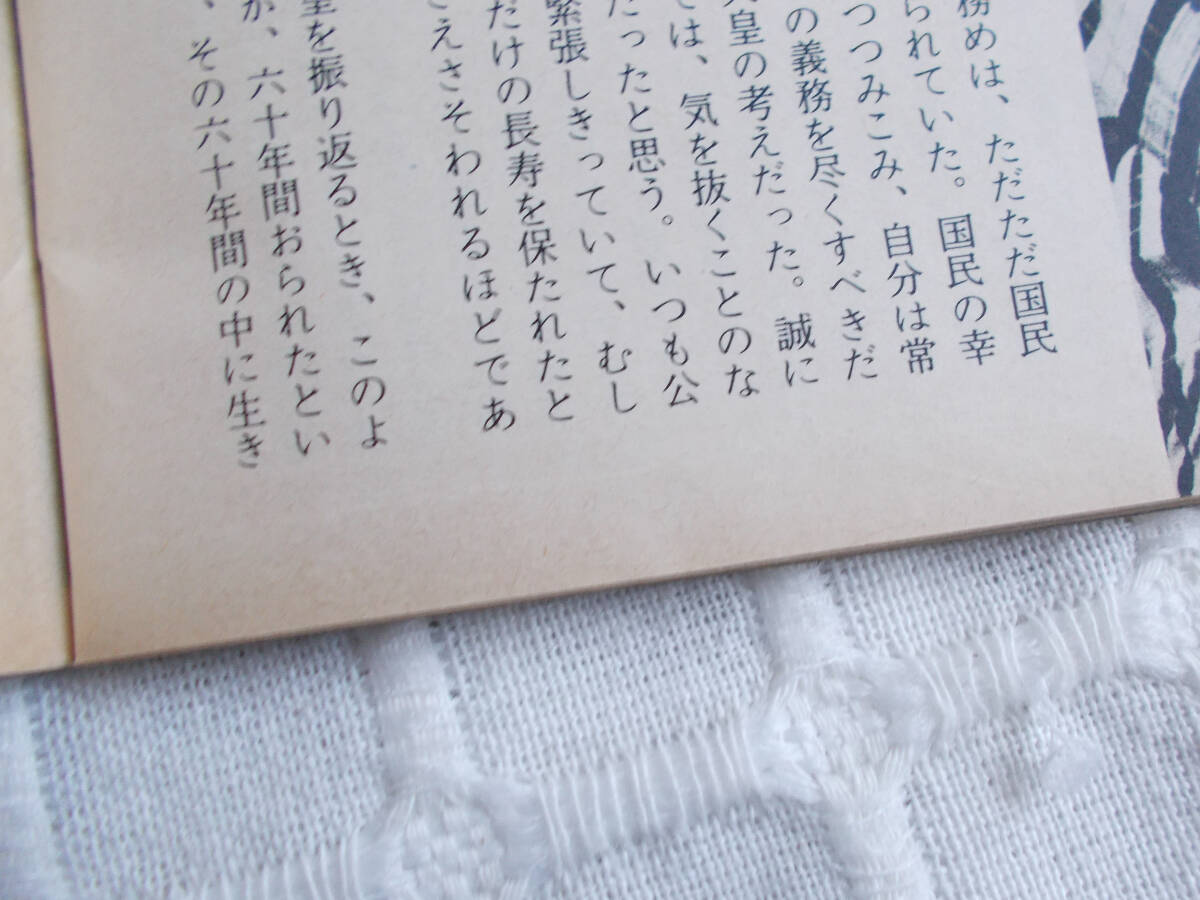 務めは、ただただ国民
られていた。国民の幸
つつみこみ、自分は常
の義務を尽くすべきだ
皇の考えだった。誠に
では、気を抜くことのな
だったと思う。いつも公
緊張しきっていて、むし
だけの長寿を保たれたと
さえさそわれるほどであ
を振り返るとき、このよ
が、六十年間おられたとい
、その六十年間の中に生き